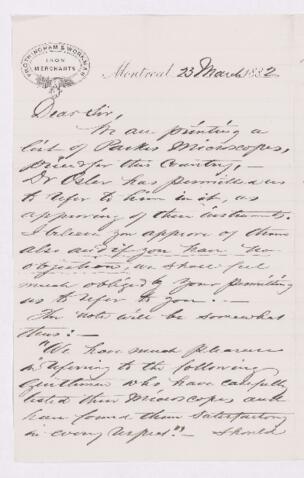 FROTHINGHAM & WORKMAN
IRON
MERCHANTS
Montreal 23 March 1882
Dear Sir,
We are printing a
list of Parkes Microscopes,
priced for this Country, —
Dr Osler has permitted us
to refer to him in it, as
approving of these instruments.
I believe you approve of them
also and if you have no
objection we shall feel
much obliged by your permitting
us to refer to you. —
The note will be somewhat
thus: —
"We have much pleasure
in referring to the following
Gentlemen who have carefully
tested these Microscopes and
have found them satisfactory
in every respect" — Should